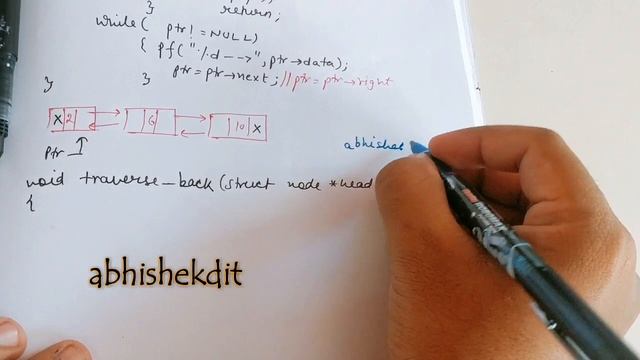 }
return;
while( ptr!=NULL)
{ pf("%d-->",ptr→data);
ptr=ptr→next; //ptr=ptr→right
} }
X 2 6 10 X
ptr
abhishek
void traverse_back(struct node *head
{
abhishekdit